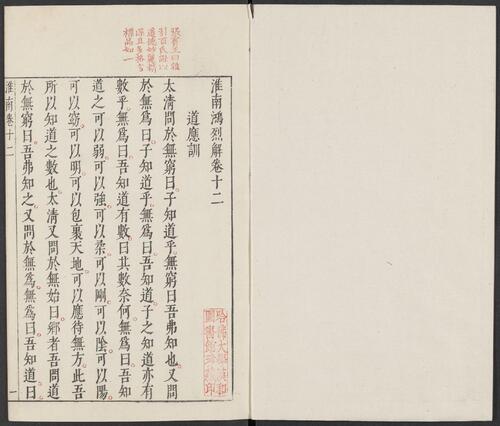 淮南鴻烈解卷十二
道應訓
太清問於無窮曰子知道乎無窮曰吾弗知也又問
於無爲曰子知道乎無爲曰吾知道子之知道亦有
數乎無爲曰吾知道有數曰其數奈何無爲曰吾知
道之可以弱可以強可以柔可以剛可以陰可以陽
可以窈可以明可以包裹天地可以應待無方此吾
所以知道之數也太清又問於無始曰鄉者吾問道
於無窮曰吾弗知之又問於無爲無爲曰吾知道曰
張賓王曰雜
引百氏證以
道德妙
深且多格言
如一
淮南卷十二
一
哈佛大學漢和
圖書館珍藏印